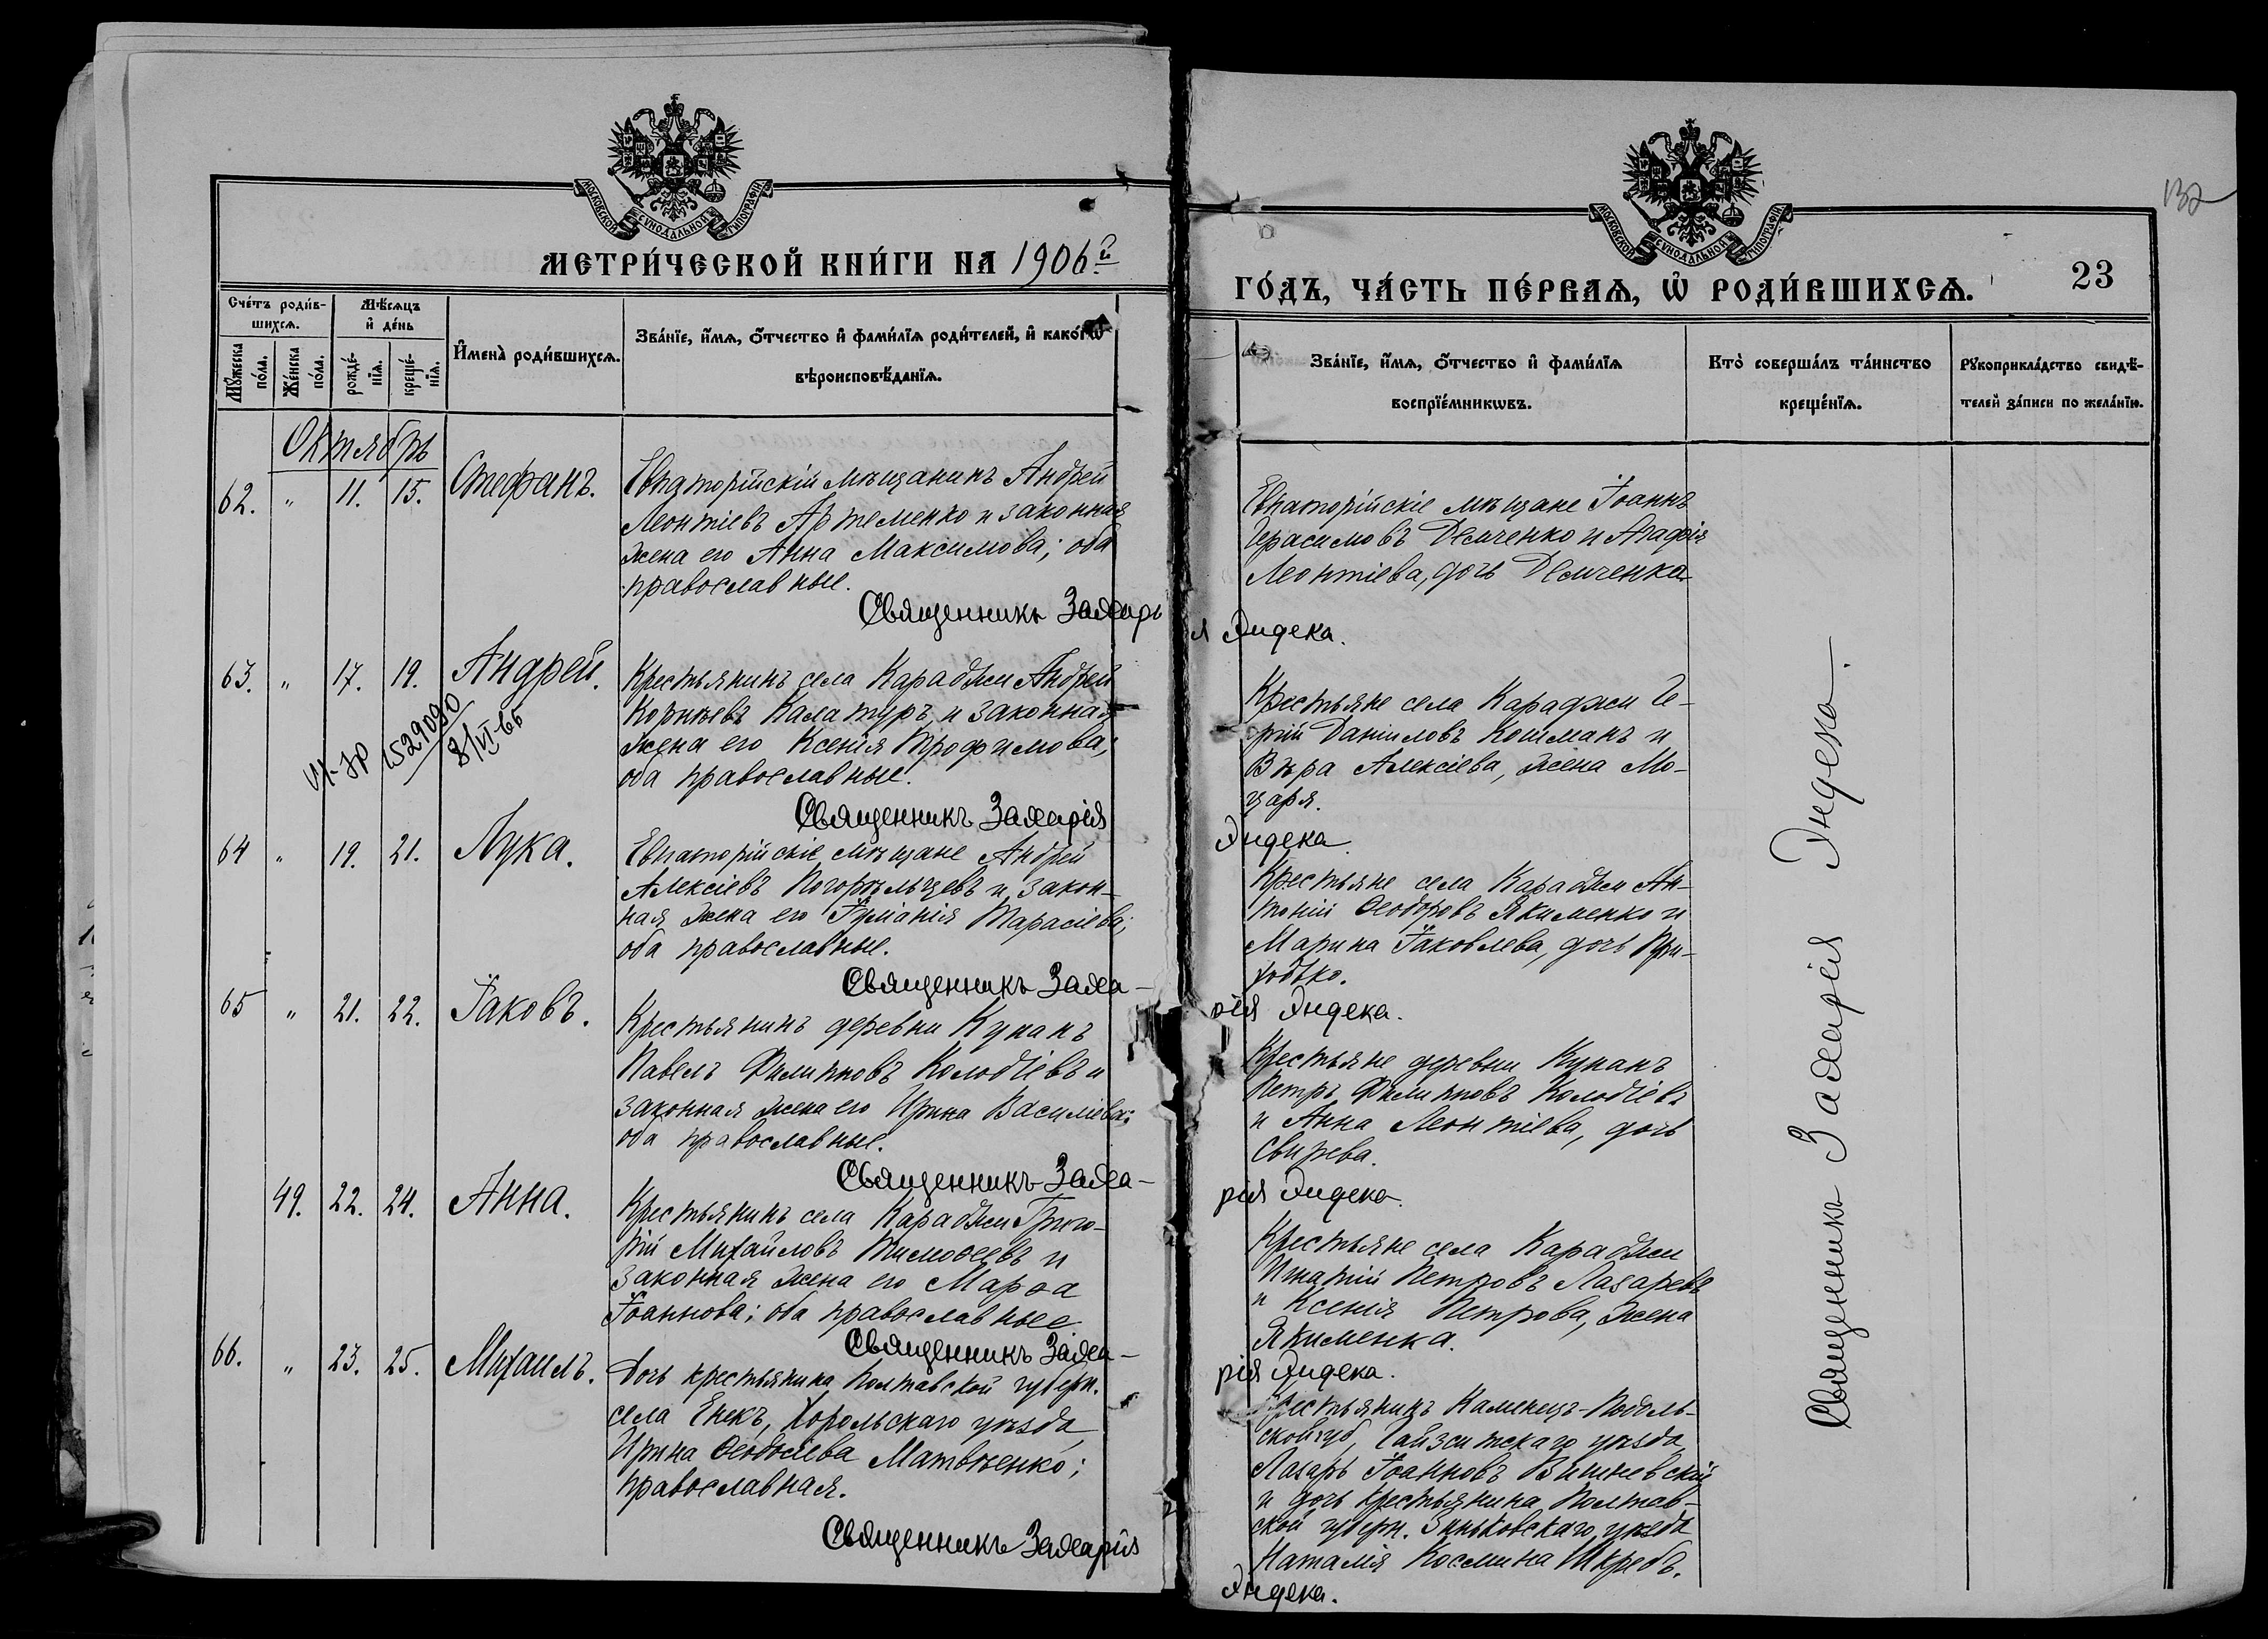 МОСКОВСКОЙ СѴНОДАЛЬНОЙ ТИПОГРАФІИ
МЕТРИ́ЧЕСКОЙ КНИ́ГИ НА 1906й
Сче́тъ роди́в-
шихсѧ.
Мꙋ́жеска
по́ла.
Же́нска
по́ла.
Мѣ́сѧцъ
и҆ де́нь
рожде́-
нїѧ.
креще́-
нїѧ.
И҆мена̀ роди́вшихсѧ.
Зва́нїе, и҆́мѧ, ѻ҆́тчество и҆ фами́лїѧ роди́телей, и҆ како́гѡ
вѣроисповѣ́данїѧ.
Октябрь
62. " 11. 15. Стефанъ.
Евпаторійскій мѣщанинъ Андрей
Леонтіевъ Артеменко и законная
жена его Анна Максимова; оба
православные.
Священникъ Захарі
63. " 17. 19. Андрей.
Крестьянинъ села Караджи Андрей
Корнѣевъ Калатуръ, и законная
жена его Ксенія Трофимова;
оба православные.
1529090
8/VI-66
Священникъ Захарія
64 " 19. 21. Лука.
Евпаторійскіе мѣщане Андрей
Алексіевъ Погорѣльцевъ и закон-
ная жена его Іуліанія Тарасіева;
оба православные.
Священникъ Заха-
65 " 21. 22. Іаковъ.
Крестьянинъ деревни Кунанъ
Павелъ Филипповъ Колодіевъ и
законная жена его Ирина Василіева;
оба православные.
Священникъ Заха-
49. 22. 24. Анна.
Крестьянинъ села Караджи Григо-
рій Михайловъ Тимоѳеевъ и
законная жена его Марѳа
Іоаннова; оба православные
Священникъ Заха-
66. " 23. 25. Михаилъ.
Дочь крестьянина Полтавской губерн.
села Енекъ, Хорольскаго уѣзда
Ирина Ѳеодосіева Матвѣенко;
православная.
Священникъ Захарія
132
МОСКОВСКОЙ СѴНОДАЛЬНОЙ ТИПОГРАФІИ
ГО́ДЪ, ЧА́СТЬ ПЕ́РВАѦ, Ѡ҆ РОДИ́ВШИХСѦ.
23
Зва́нїе, и҆́мѧ, ѻ҆́тчество и҆ фами́лїѧ
воспрїе́мникѡвъ.
Кто̀ соверша́лъ та́инство
креще́нїѧ.
Рꙋкоприкла́дство свидѣ́-
телей за́писи по жела́нїю.
Евпаторійскіе мѣщане Іоаннъ
Герасимовъ Демченко и Агафія
Леонтіева, дочь Демченка
я Яндека.
Крестьяне села Караджи Ге-
ргій Даніиловъ Кошманъ и
Вѣра Алексіева, жена Мо-
царя.
Яндека
Крестьяне села Караджи Ан-
тоній Ѳеодоровъ Якименко и
Марина Іаковлева, дочь При-
ходько.
рія Яндека.
Крестьяне деревни Кунанъ
Петръ Филипповъ Колодіевъ
и Анна Леонтіева, дочь
Свирева.
рія Яндека.
Крестьяне села Караджи
Игнатій Петровъ Лазаревъ
и Ксенія Петрова, жена
Якименка.
рія Яндека.
Крестьянинъ Каменецъ-Подоль-
ской губ, Гайситскаго уѣзда
Лазарь Іоанновъ Вишневскій
и дочь крестьянина Полтав-
ской губерн. Зиньковскаго уѣзда
Наталія Космина Шкребъ.
Яндека.
Священникъ Захарія Яндека.